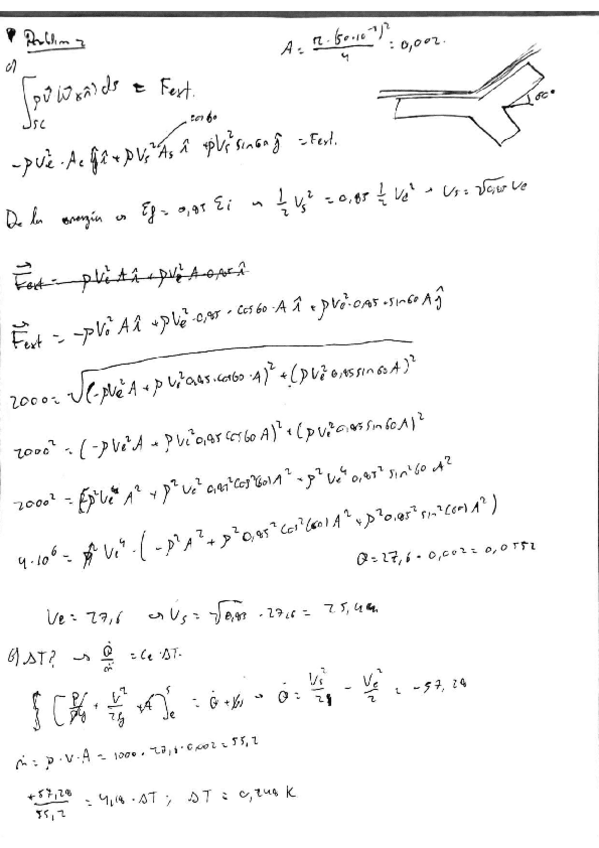 Problem 2
A = π·(50·10⁻³)²/4 = 0,002.
a)
∫_SC ρv⃗(v⃗×n̂)ds = Fext.
60°
cos60
-ρVe²·Ae x̂ + ρVs²As x̂ + ρVs² sin60 ĵ = Fext.
De la energía → Ef = 0,85 Ei → 1/2 Vs² = 0,85 1/2 Ve² → Vs = √0,85 Ve
Fext = -ρVe²A x̂ + ρVe²A·0,85 x̂
Fext = -ρVe²A x̂ + ρVe²·0,85·cos60·A x̂ + ρVe²·0,85·sin60 A ĵ
2000 = √(-ρVe²A + ρVe²0,85·cos60·A)² + (ρVe²0,85 sin60A)²
2000² = (-ρVe²A + ρVe²0,85cos60A)² + (ρVe²0,85sin60A)²
2000² = ρ²Ve⁴A² + ρ²Ve²0,85²cos²(60)A² + ρ²Ve⁴0,85²sin²60A²
4·10⁶ = Ve⁴·(-ρ²A² + ρ²0,85²cos²(60)A² + ρ²0,85²sin²(60)A²)
Q = 27,6·0,002 = 0,0552
Ve = 27,6 → Vs = √0,85·27,6 = 25,44
b) ΔT? → Q̇/ṁ = Ce·ΔT.
[P/ρg + V²/2g + ]ₑˢ = Q̇ + → Q̇ = Vs²/2 - Ve²/2 = -57,28
ṁ = ρ·V·A = 1000·27,6·0,002 = 55,2
+57,28/55,2 = 4,18·ΔT; ΔT = 0,248 K